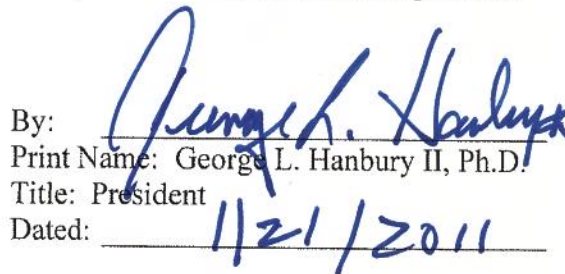 By: George L. Hanbury
Print Name: George L. Hanbury II, Ph.D.
Title: President
Dated: 1/21/2011